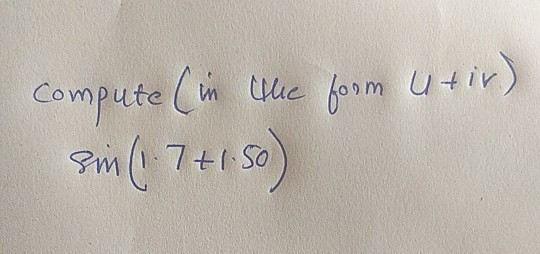 compute (in the form u + iv)
sin (1.7 + 1.50)